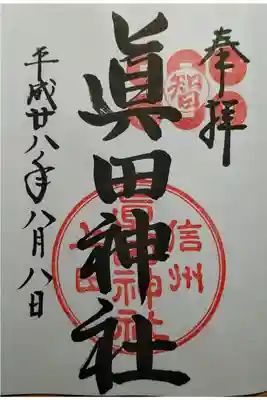 奉拝
智
眞田神社
信州
上田
眞田神社
平成廿八年八月八日